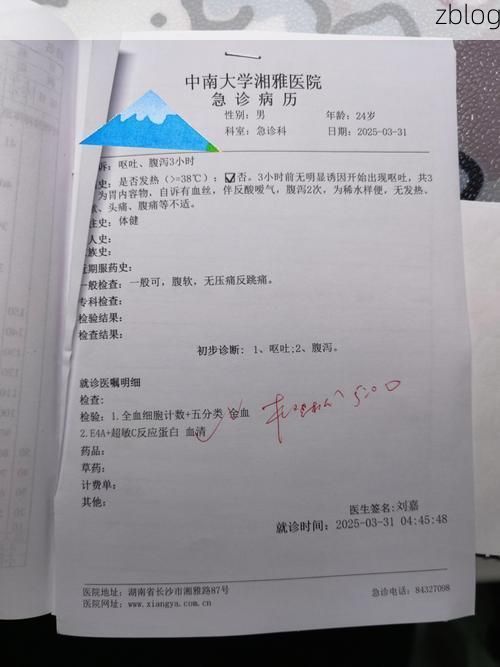 zblog
中南大学湘雅医院
急诊病历
性别：男 年龄：24岁
科室：急诊科 日期：2025-03-31
诉：呕吐、腹泻3小时
史：是否发热（>=38℃）：☑否。3小时前无明显诱因开始出现呕吐，共3
为胃内容物，自诉有血丝，伴反酸嗳气，腹泻2次，为稀水样便，无发热、
、头痛、腹痛等不适。
往史：体健
人史：
族史：
近期服药史：
一般检查：一般可，腹软，无压痛反跳痛。
专科检查：
检验结果：
检查结果：
初步诊断： 1、呕吐;2、腹泻。
就诊医嘱明细
检查：
检验：1.全血细胞计数+五分类 全血
2.E4A+超敏C反应蛋白 血清
药品：
草药：
计费单：
其他：
医生签名:刘嘉
就诊时间：2025-03-31 04:45:48
医院地址：湖南省长沙市湘雅路87号 急诊电话：84327098
医院网址：www.xiangya.com.cn